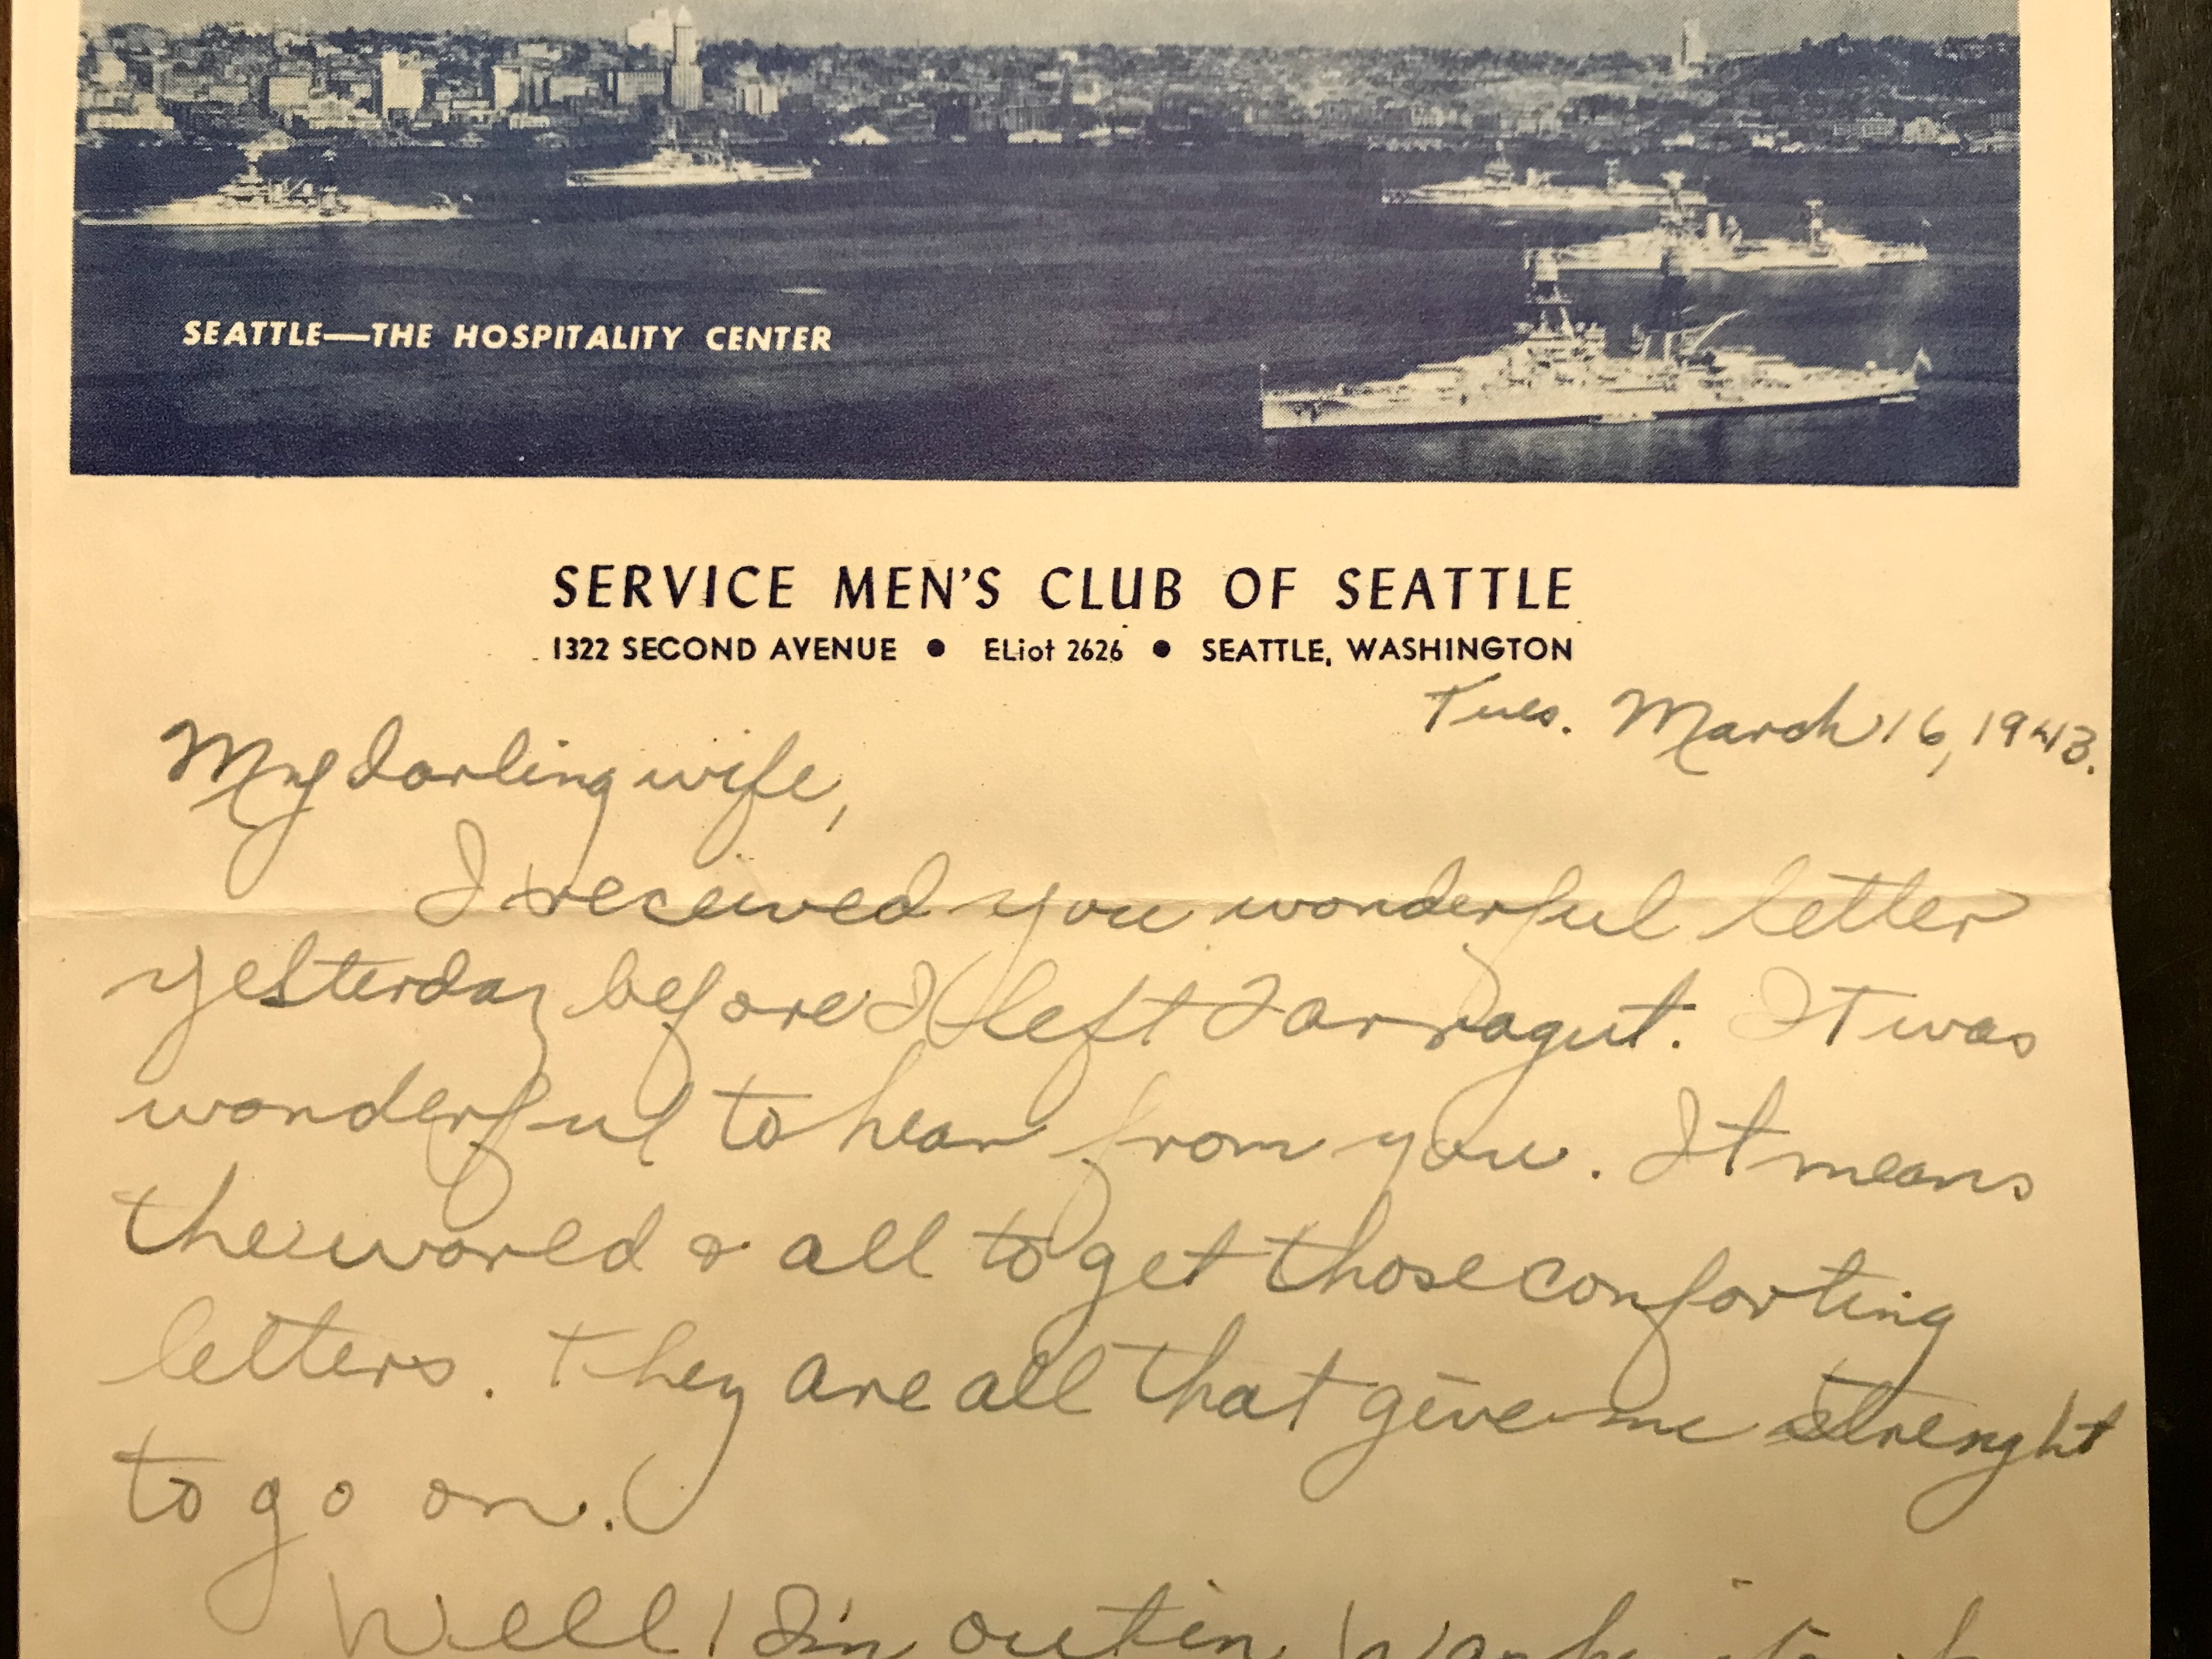 SEATTLE—THE HOSPITALITY CENTER
SERVICE MEN'S CLUB OF SEATTLE
1322 SECOND AVENUE ● ELiot 2626 ● SEATTLE, WASHINGTON
Tues. March 16, 1943.
My darling wife,
I received you wonderful letter
yesterday before I left Farragut. It was
wonderful to hear from you. It means
the world & all to get those comforting
letters. They are all that give me strenght
to go on.
Well I I'm out in